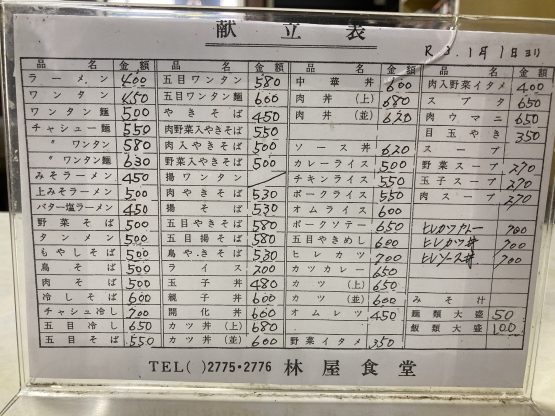 献立表
R3.1月1日より
品名 金額 品名 金額 品名 金額 品名 金額
ラーメン 400
ワンタン 450
ワンタン麺 500
チャシュー麺 550
〃ワンタン 580
〃ワンタン麺 630
みそラーメン 450
上みそラーメン 500
バター塩ラーメン 450
野菜そば 500
タンメン 500
もやしそば 500
鳥そば 500
肉そば 500
冷しそば 600
チャシュ冷し 700
五目冷し 650
五目そば 550
五目ワンタン 580
五目ワンタン麺 600
やきそば 450
肉野菜入やきそば 550
肉入やきそば 500
野菜入やきそば 500
揚ワンタン
肉やきそば 530
揚そば 530
五目やきそば 580
五目揚そば 580
鳥やきそば 530
ライス 200
玉子丼 480
親子丼 600
開化丼 600
カツ丼(上) 680
カツ丼(並) 600
中華丼 600
肉丼(上) 680
肉丼(並) 620
ソース丼 620
カレーライス 500
チキンライス 550
ポークライス 550
オムライス 600
ポークソテー 650
五目やきめし 600
ヒレカツ 700
カツカレー 650
カツ(上) 650
カツ(並) 600
オムレツ 450
野菜イタメ 350
肉入野菜イタメ 400
スブタ 650
肉ウマニ 650
目玉やき 350
スープ
野菜スープ 270
玉子スープ 270
肉スープ 270
700
ヒレカツ丼 700
ヒレソース丼 700
みそ汁
麺類大盛 50
飯類大盛 100
TEL( )2775・2776 林屋食堂